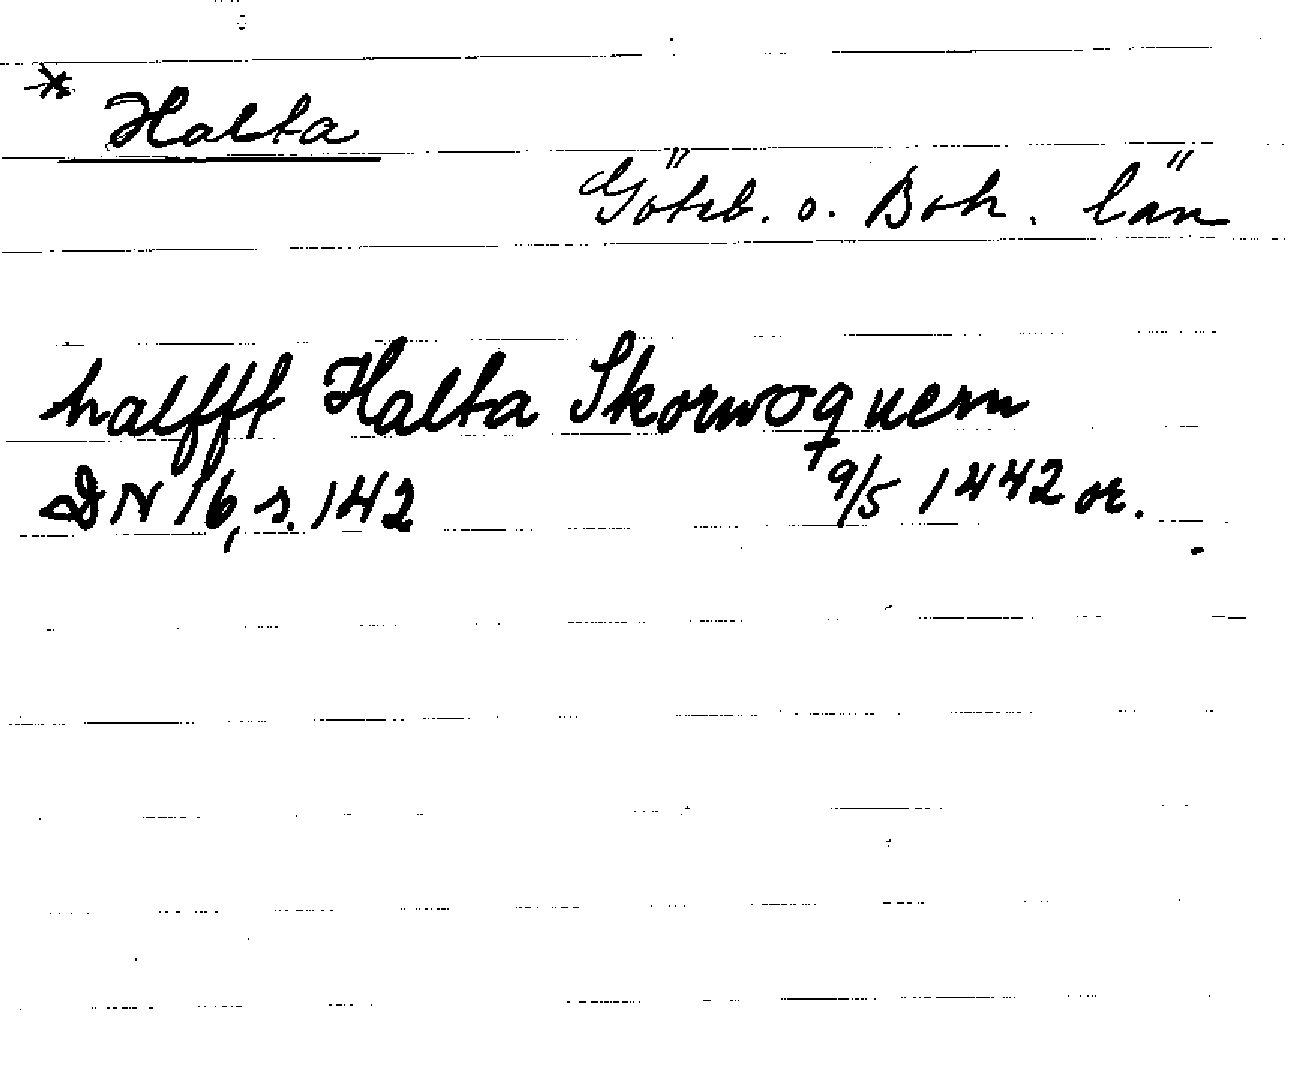 * Halta
Göteb. o. Boh. län
halfft Halta Skorwoquern
DN 16, s. 142 9/5 1442 or.